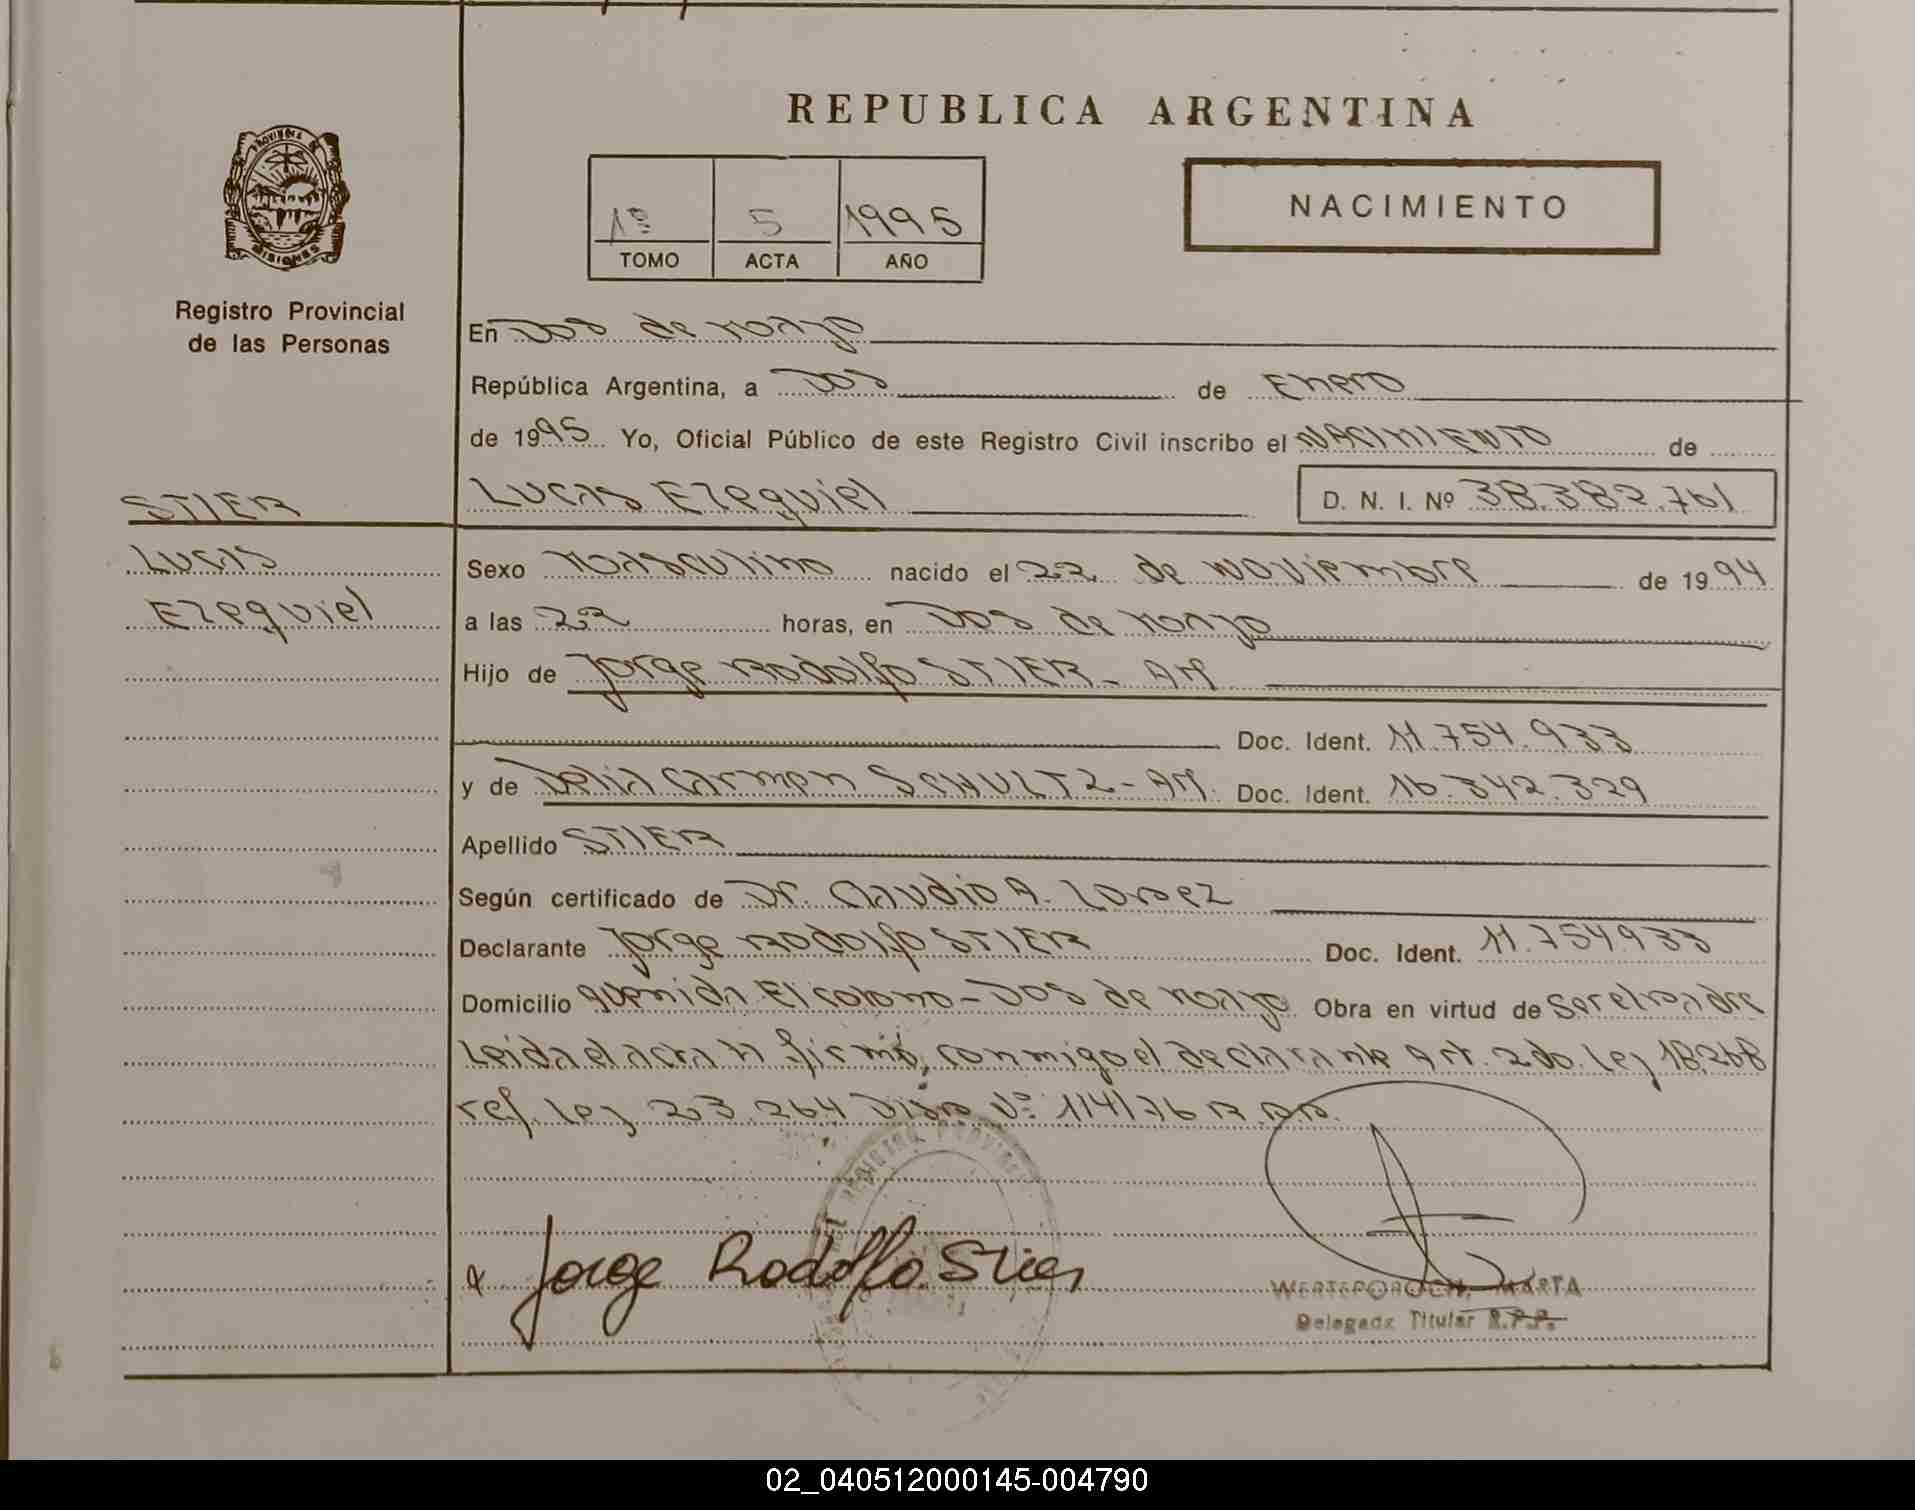 REPUBLICA ARGENTINA
PROVINCIA DE
MISIONES
Registro Provincial
de las Personas
1º 5 1995
TOMO ACTA AÑO
NACIMIENTO
En Dos de Mayo
República Argentina, a Dos de Enero
de 1995 Yo, Oficial Público de este Registro Civil inscribo el NACIMIENTO de
STIER
Lucas Ezequiel D. N. I. Nº 38.382.761
Lucas
Ezequiel
Sexo Masculino nacido el 22 de Noviembre de 1994
a las 22 horas, en Dos de Mayo
Hijo de Jorge Rodolfo STIER - AM
Doc. Ident. 11.754.933
y de Delia Carmen SCHULTZ - AM. Doc. Ident. 16.342.329
Apellido STIER
Según certificado de Dr. Claudio A. Lopez
Declarante Jorge Rodolfo STIER Doc. Ident. 11.754933
Domicilio Avenida El Colono - Dos de Mayo Obra en virtud de Ser el padre
Leida el acta la firmó, conmigo el declarante Art. 2do. Ley 18.248
ref. Ley 23.264 Disp. Nº 114/76 R.P.P.
REGISTRO PROVINCIAL
Jorge Rodolfo Stier
MARTA
Delegada Titular R.P.P.
02_040512000145-004790